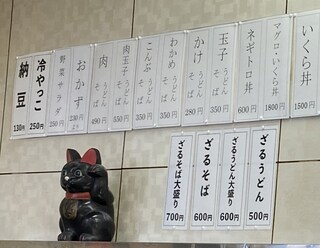 いくら丼
1500円
マグロ・いくら丼
1800円
ネギトロ丼
600円
玉子
うどん
そば
350円
かけ
うどん
そば
280円
わかめ
うどん
そば
350円
こんぶ
うどん
そば
350円
肉玉子
うどん
そば
550円
肉
うどん
そば
490円
おかず
230円
より
野菜サラダ
250円
冷やっこ
250円
納豆
130円
ざるうどん
500円
ざるうどん大盛り
600円
ざるそば
600円
ざるそば大盛り
700円